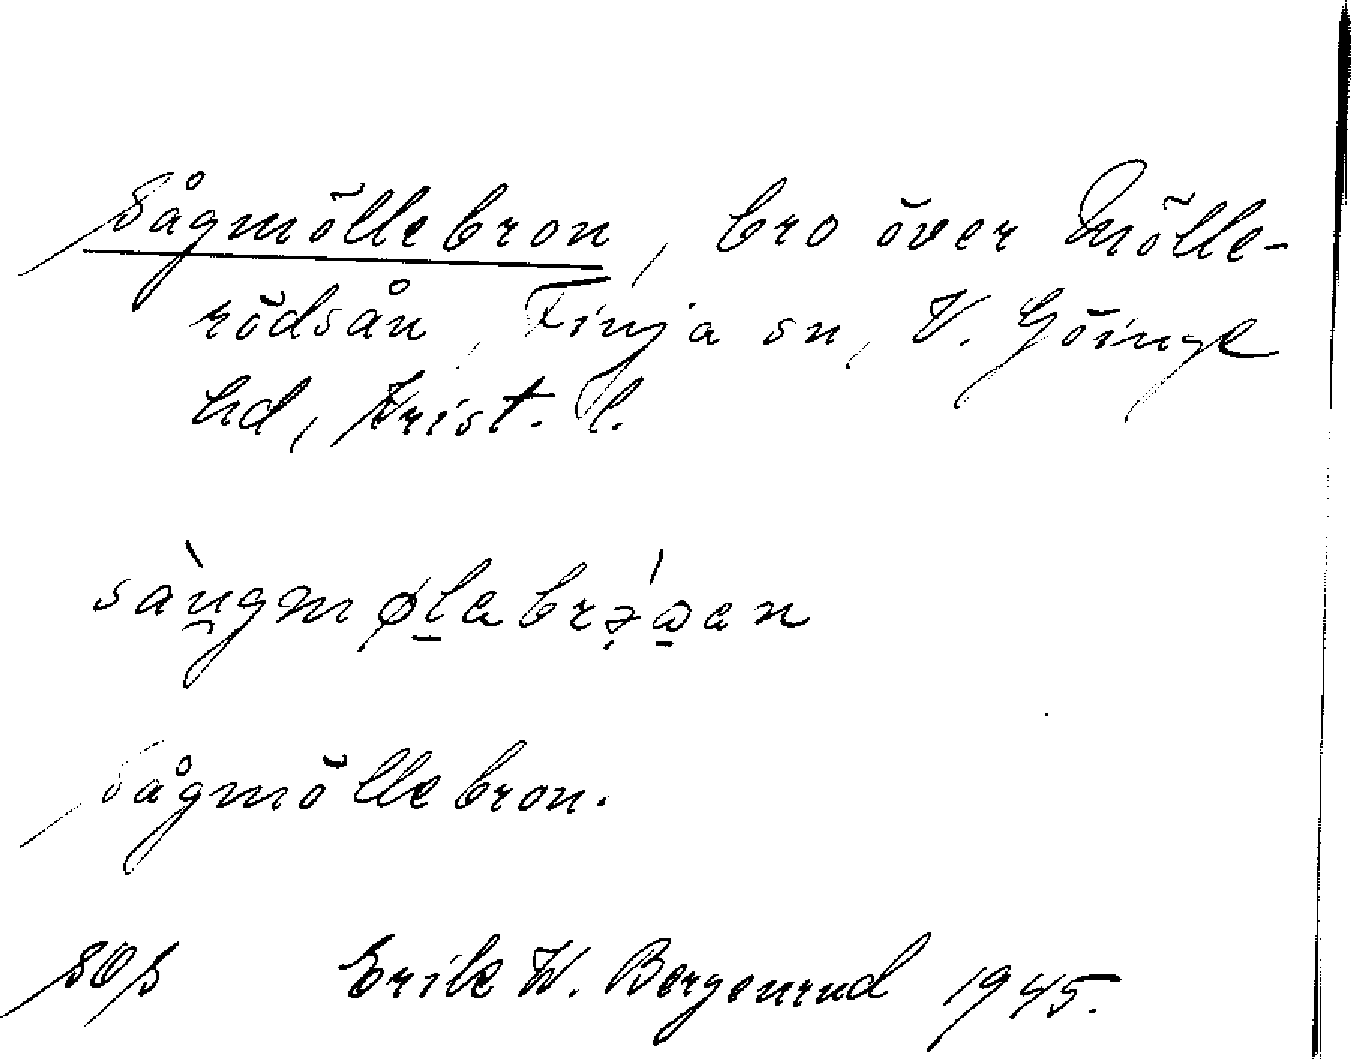 Sågmöllebron, bro över Mölle-
rödsån, Finja sn, V. Göinge
hd, Krist. l.
sàu̯gmøl̠abrə̣́a̠en
Sågmöllebron.
SOS Erik W. Bergenrud 1945.